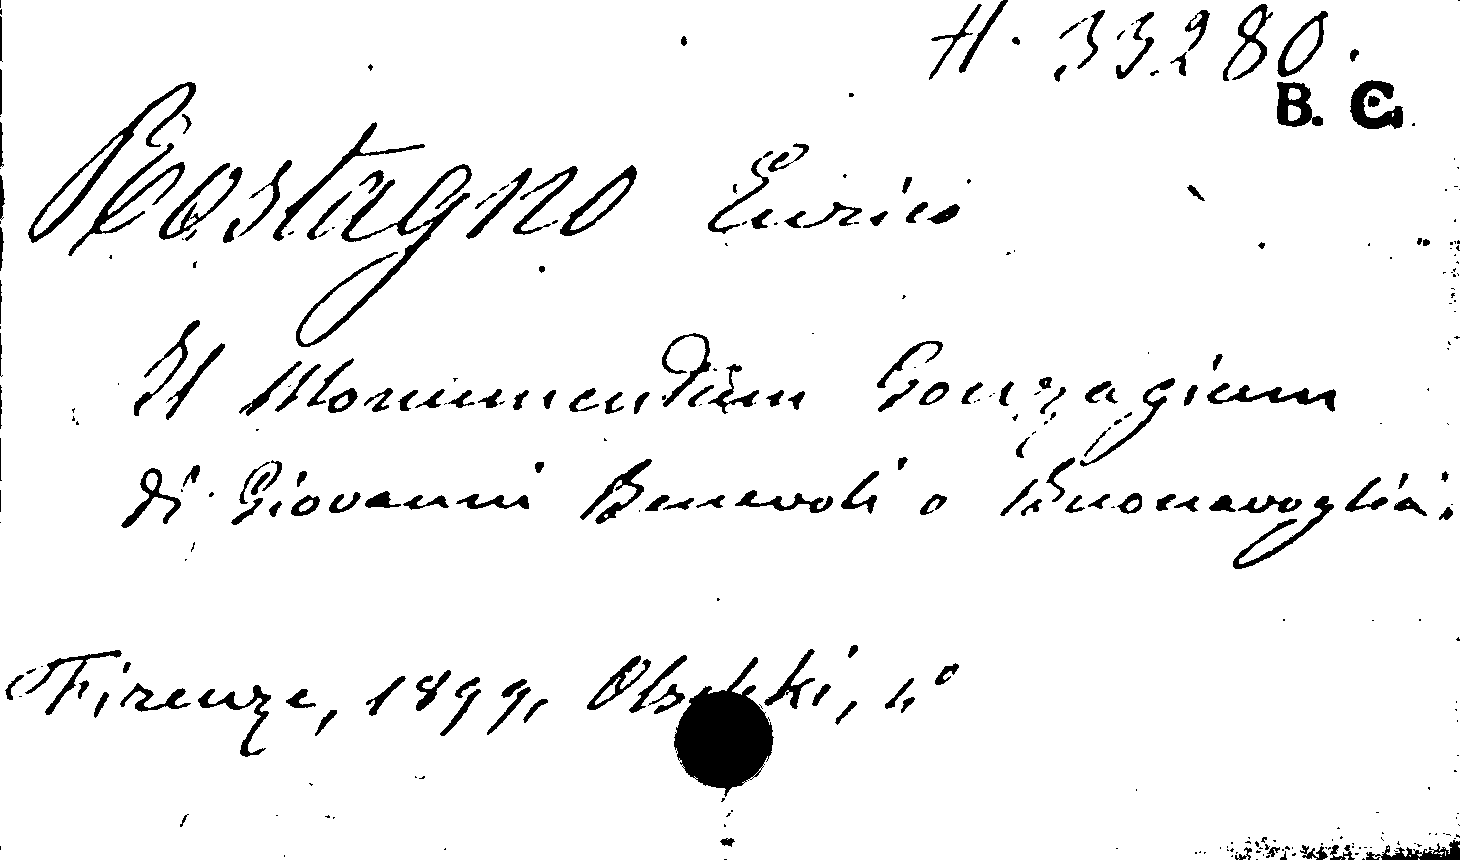 H. 33280.
B. C.
Rostagno Enrico
Il Monumentum Gonzagium
di Giovanni Benevoli o Buonavoglia.
Firenze, 1899, Olschki, 4°